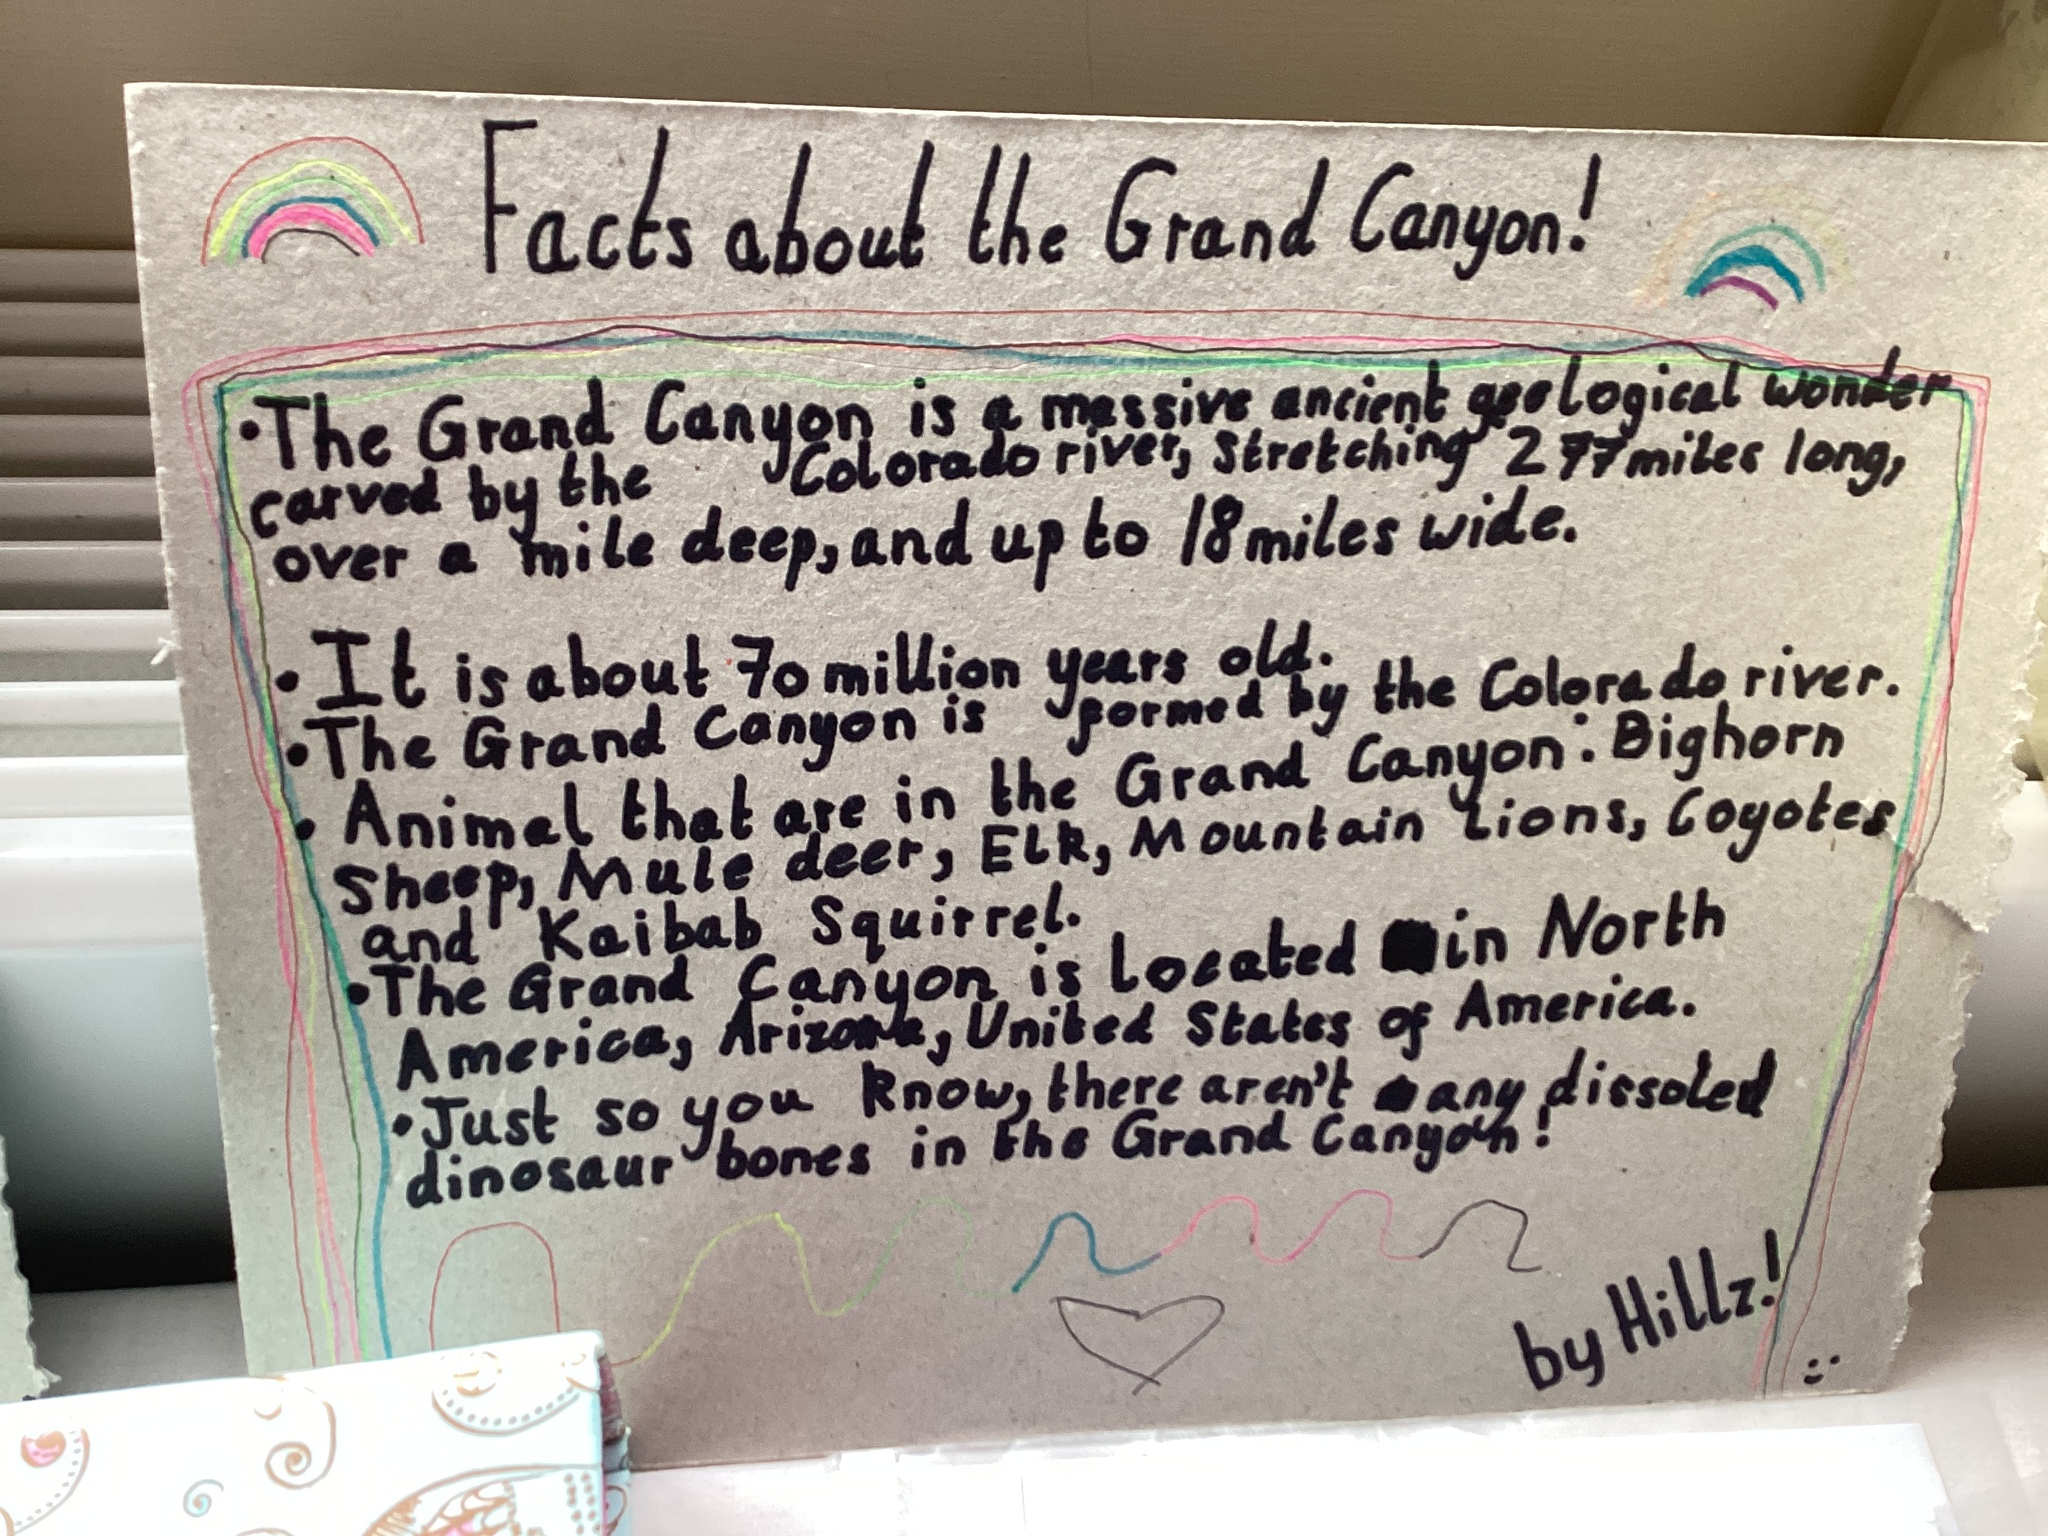 Facts about the Grand Canyon!
•The Grand Canyon is a massive ancient geological wonder
carved by the Colorado river, stretching 277 miles long,
over a mile deep, and up to 18 miles wide.
• It is about 70 million years old.
•The Grand Canyon is formed by the Colorado river.
• Animal that are in the Grand Canyon: Bighorn
Sheep, Mule deer, Elk, Mountain Lions, Coyotes
and Kaibab Squirrel.
•The Grand Canyon is located in North
America, Arizona, United States of America.
•Just so you know, there aren't any dissoled
dinosaur bones in the Grand Canyon!
by Hillz!